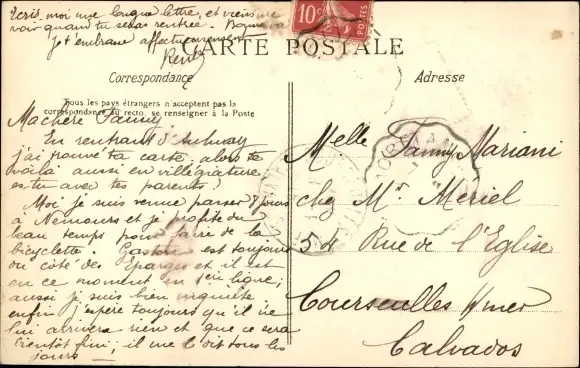 Ecris-moi une longue lettre, et viens me
voir quand tu seras rentrée. Bonne va
je t'embrasse affectueusement
Renée
10c
POSTES
CARTE POSTALE
Correspondance
Adresse
Tous les pays étrangers n'acceptent pas la
correspondance au recto, se renseigner à la Poste
Ma chère Fanny
En rentrant d'Aulnay
j'ai trouvé ta carte, alors te
voilà aussi en villégiature,
es-tu avec tes parents?
Moi je suis venue passer 8 jours
à Nemours et je profite du
beau temps pour faire de la
bicyclette. Gaston est toujours
du côté des Eparges et il est
en ce moment en 1ère ligne;
aussi je suis bien inquiète
enfin j'espère toujours qu'il ne
lui arrivera rien et que ce sera
bientôt fini; il me le dit tous les
jours —
Melle Fanny Mariani
chez Mr Meriel
54 Rue de l'Eglise
Courseulles s/mer
Calvados